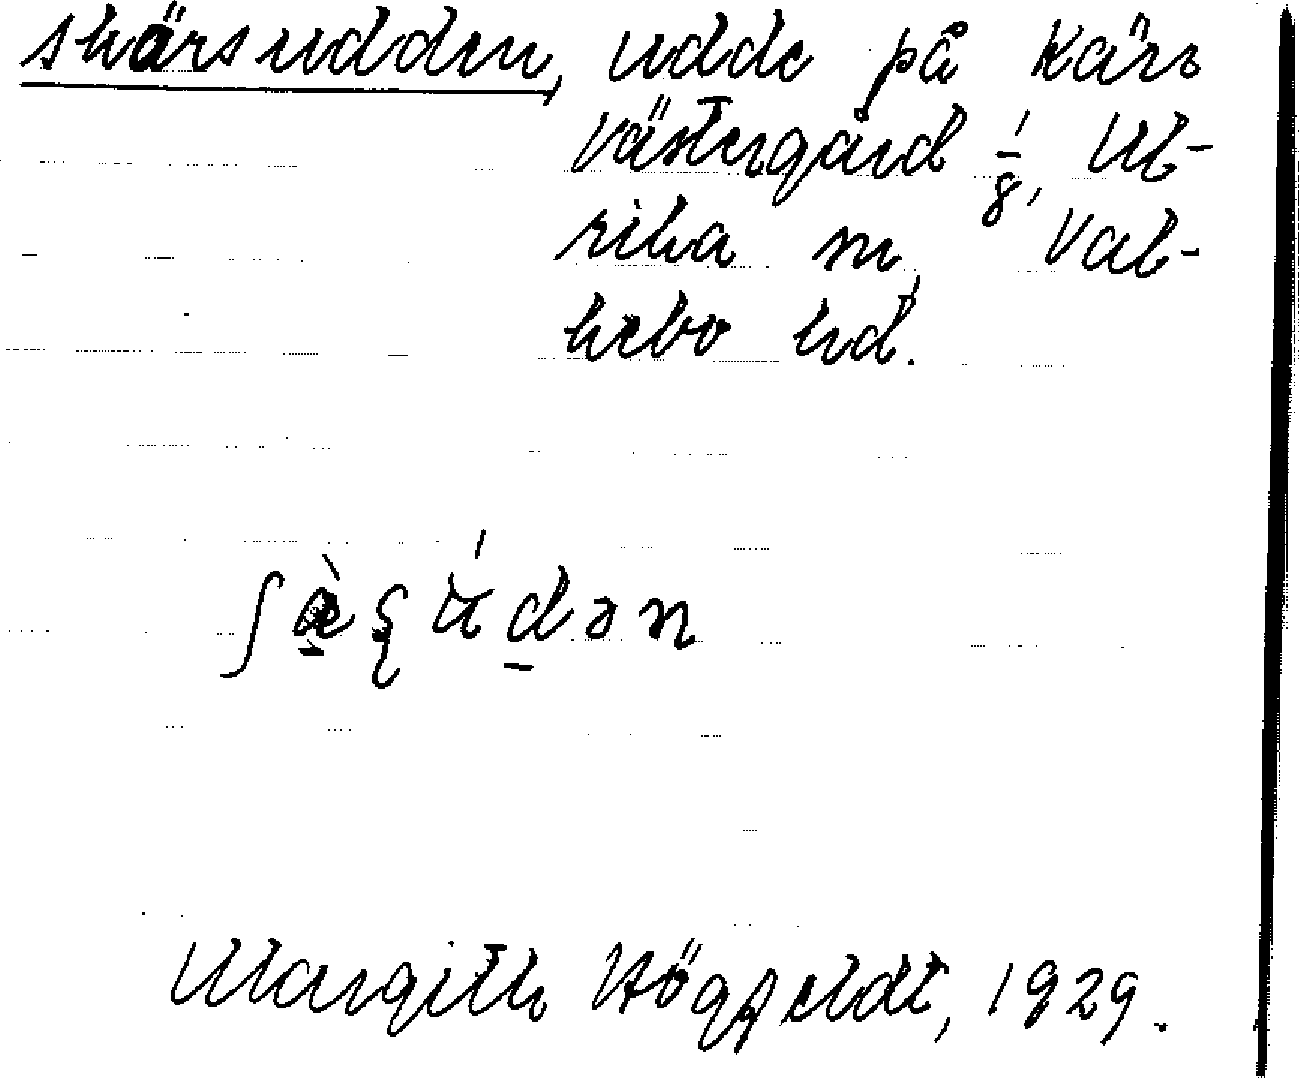 skärsudden, udde på Kärr
Västergård 1/8, Ul-
rika sn, Val-
kebo hd.
ʃæ̀ʂúdən
Margith Högfeldt, 1929.